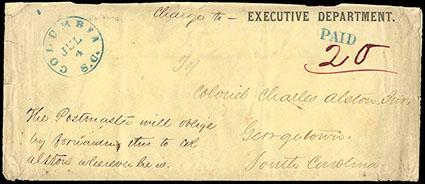 Charge to — EXECUTIVE DEPARTMENT.
COLUMBIA S.C.
JUL
4
PAID
20
To
Colonel Charles Alston, Junr.
Georgetown.
South Carolina.
The Postmaster will oblige
by forwarding this to Col
Alston wherever he is.